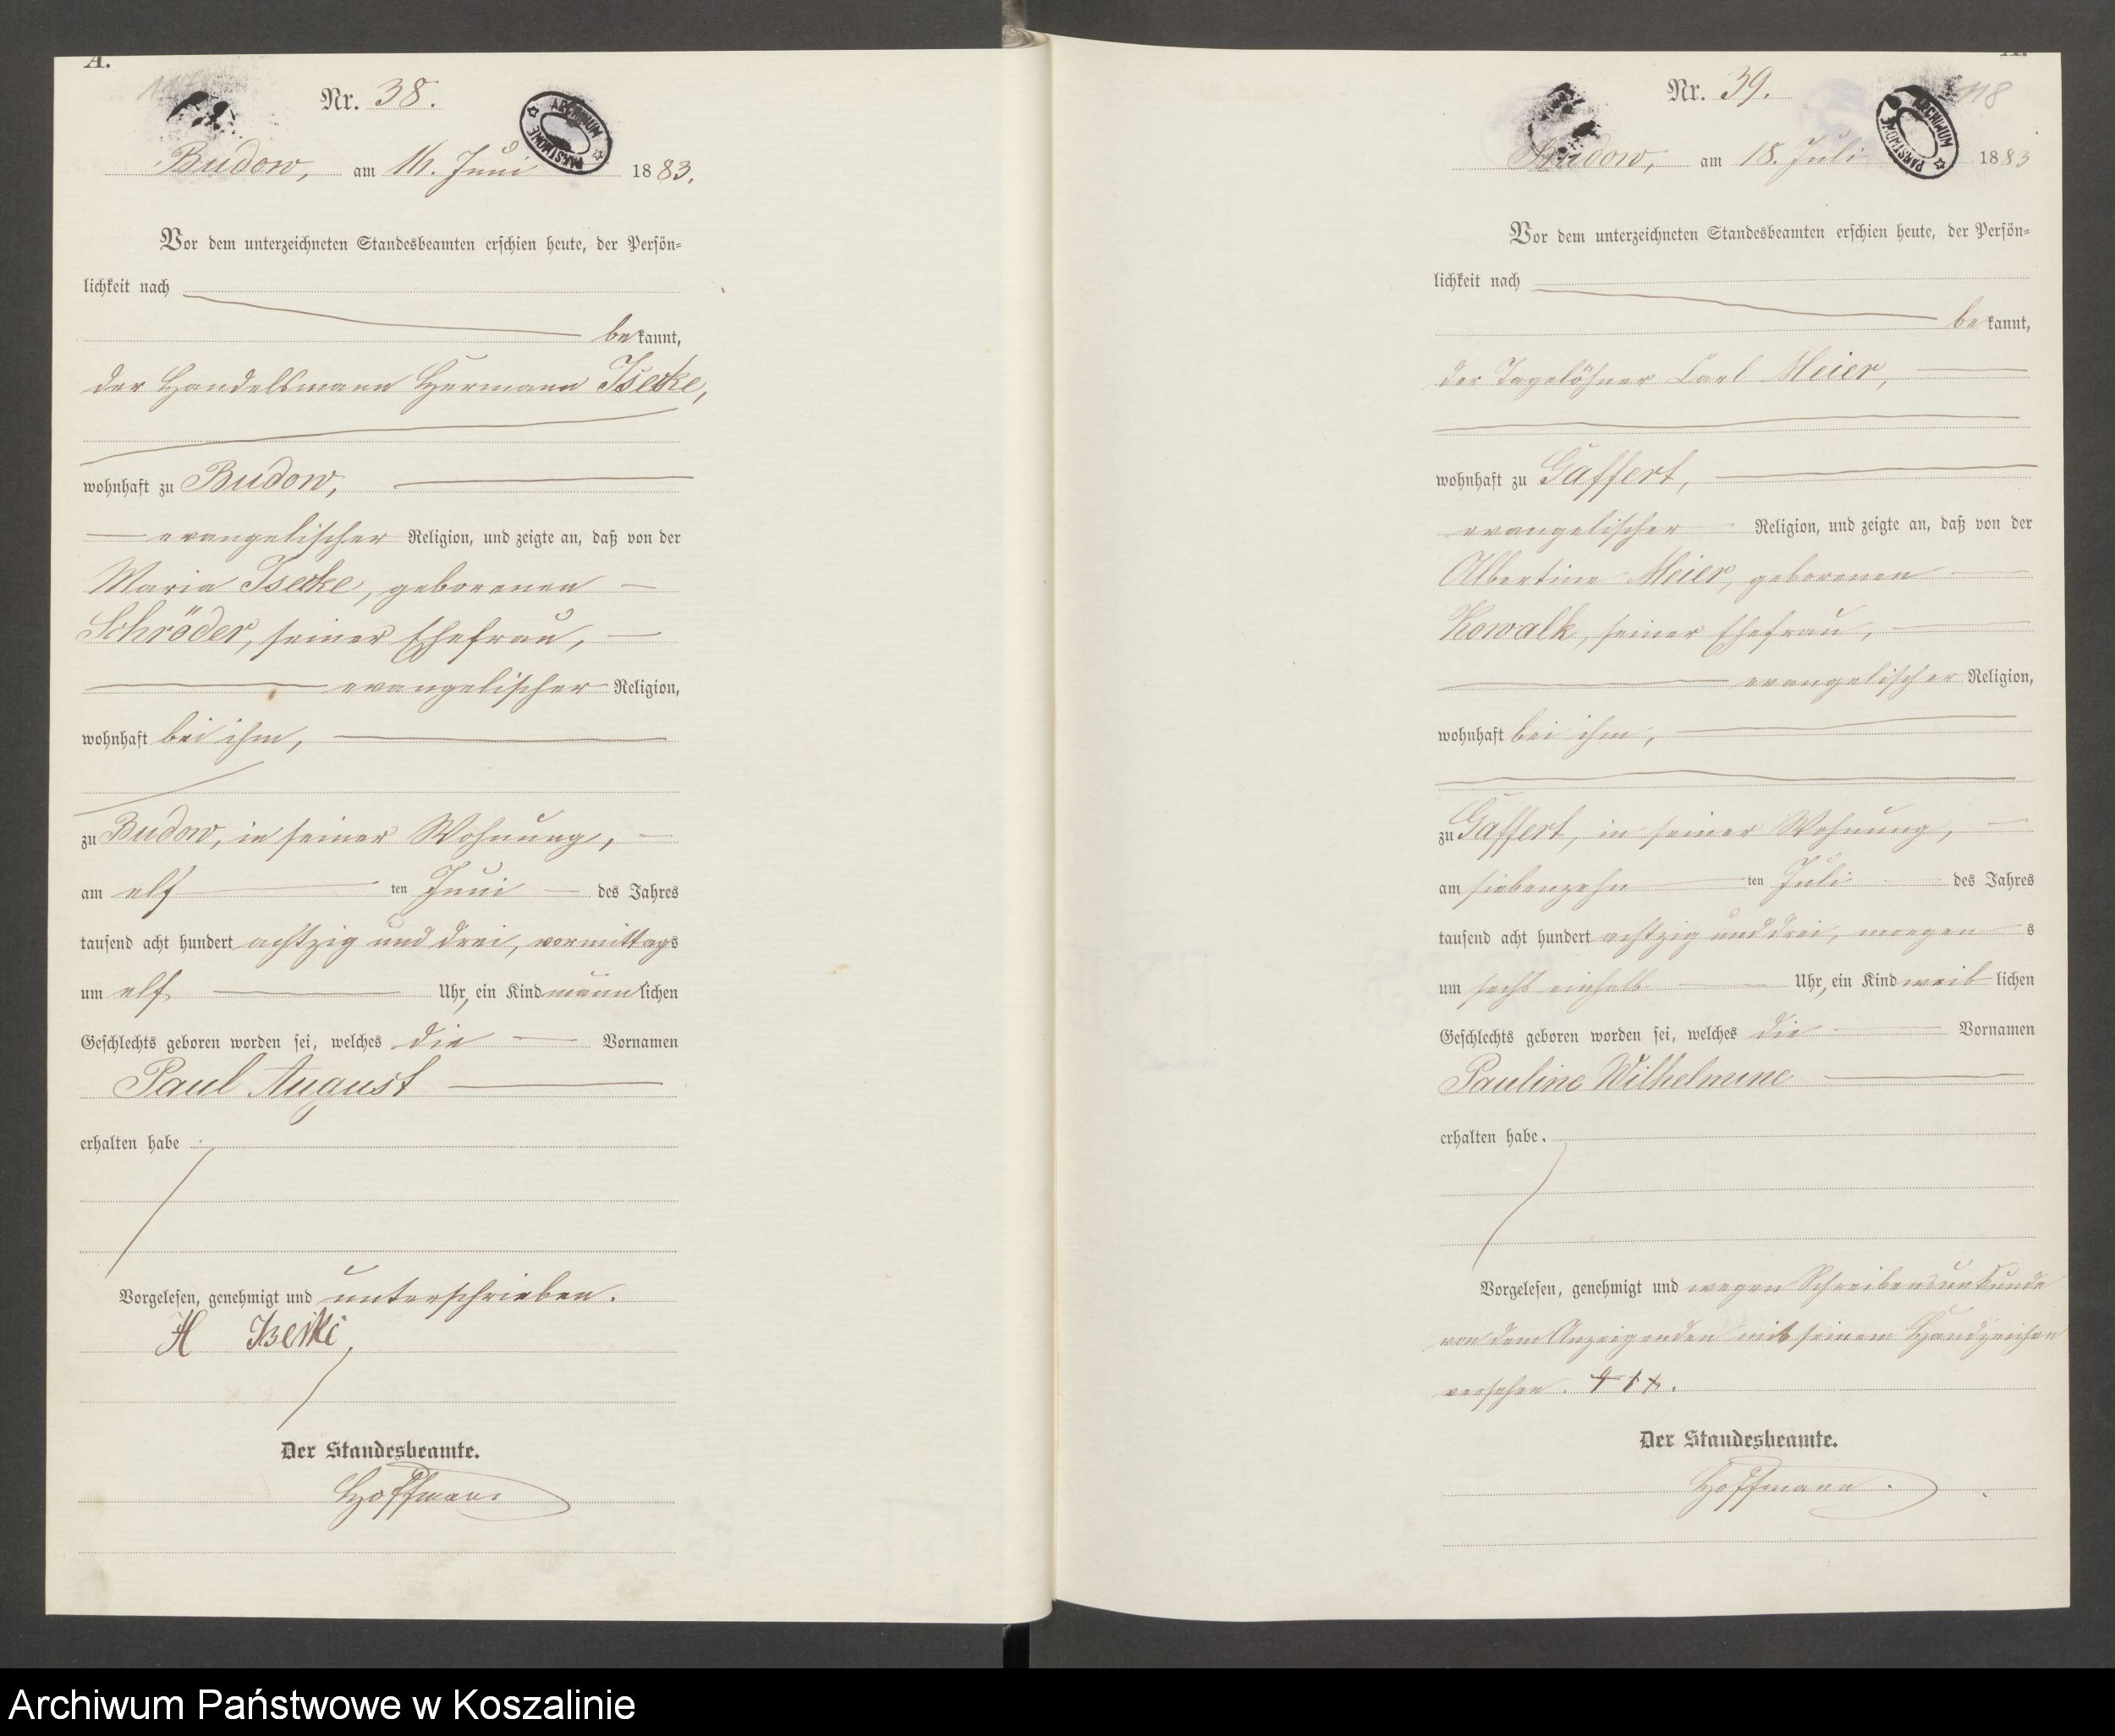 A.
117
Nr. 38.
ARCHIWUM PAŃSTWOWE
Budow, am 14. Juni 1883.
Vor dem unterzeichneten Standesbeamten erschien heute, der Persön=
lichkeit nach
bekannt,
der Handelsmann Hermann
wohnhaft zu Budow,
evangelischer Religion, und zeigte an, daß von der
Maria geborenen
Schröder, seiner Ehefrau,
evangelischer Religion,
wohnhaft bei ihm,
zu Budow, in seiner Wohnung,
am elf ten Juni des Jahres
tausend acht hundert achtzig und drei, vormittags
um elf Uhr, ein Kind männlichen
Geschlechts geboren worden sei, welches die Vornamen
Paul August
erhalten habe.
Vorgelesen, genehmigt und unterschrieben.
H
Der Standesbeamte.
Hoffmann
A.
118
Nr. 39.
ARCHIWUM PAŃSTWOWE
Budow, am 18. Juli 1883
Vor dem unterzeichneten Standesbeamten erschien heute, der Persön=
lichkeit nach
bekannt,
der Tagelöhner Carl Meier,
wohnhaft zu Gaffert,
evangelischer Religion, und zeigte an, daß von der
Albertine Meier, geborenen
Kowalk, seiner Ehefrau,
evangelischer Religion,
wohnhaft bei ihm,
zu Gaffert, in seiner Wohnung,
am siebenzehn ten Juli des Jahres
tausend acht hundert achtzig und drei, morgens
um sechs einhalb Uhr, ein Kind weiblichen
Geschlechts geboren worden sei, welches die Vornamen
Pauline Wilhelmine
erhalten habe.
Vorgelesen, genehmigt und wegen Schreibensunkunde
von dem Anzeigenden mit seinem Handzeichen
versehen. +++.
Der Standesbeamte.
Hoffmann.
Archiwum Państwowe w Koszalinie